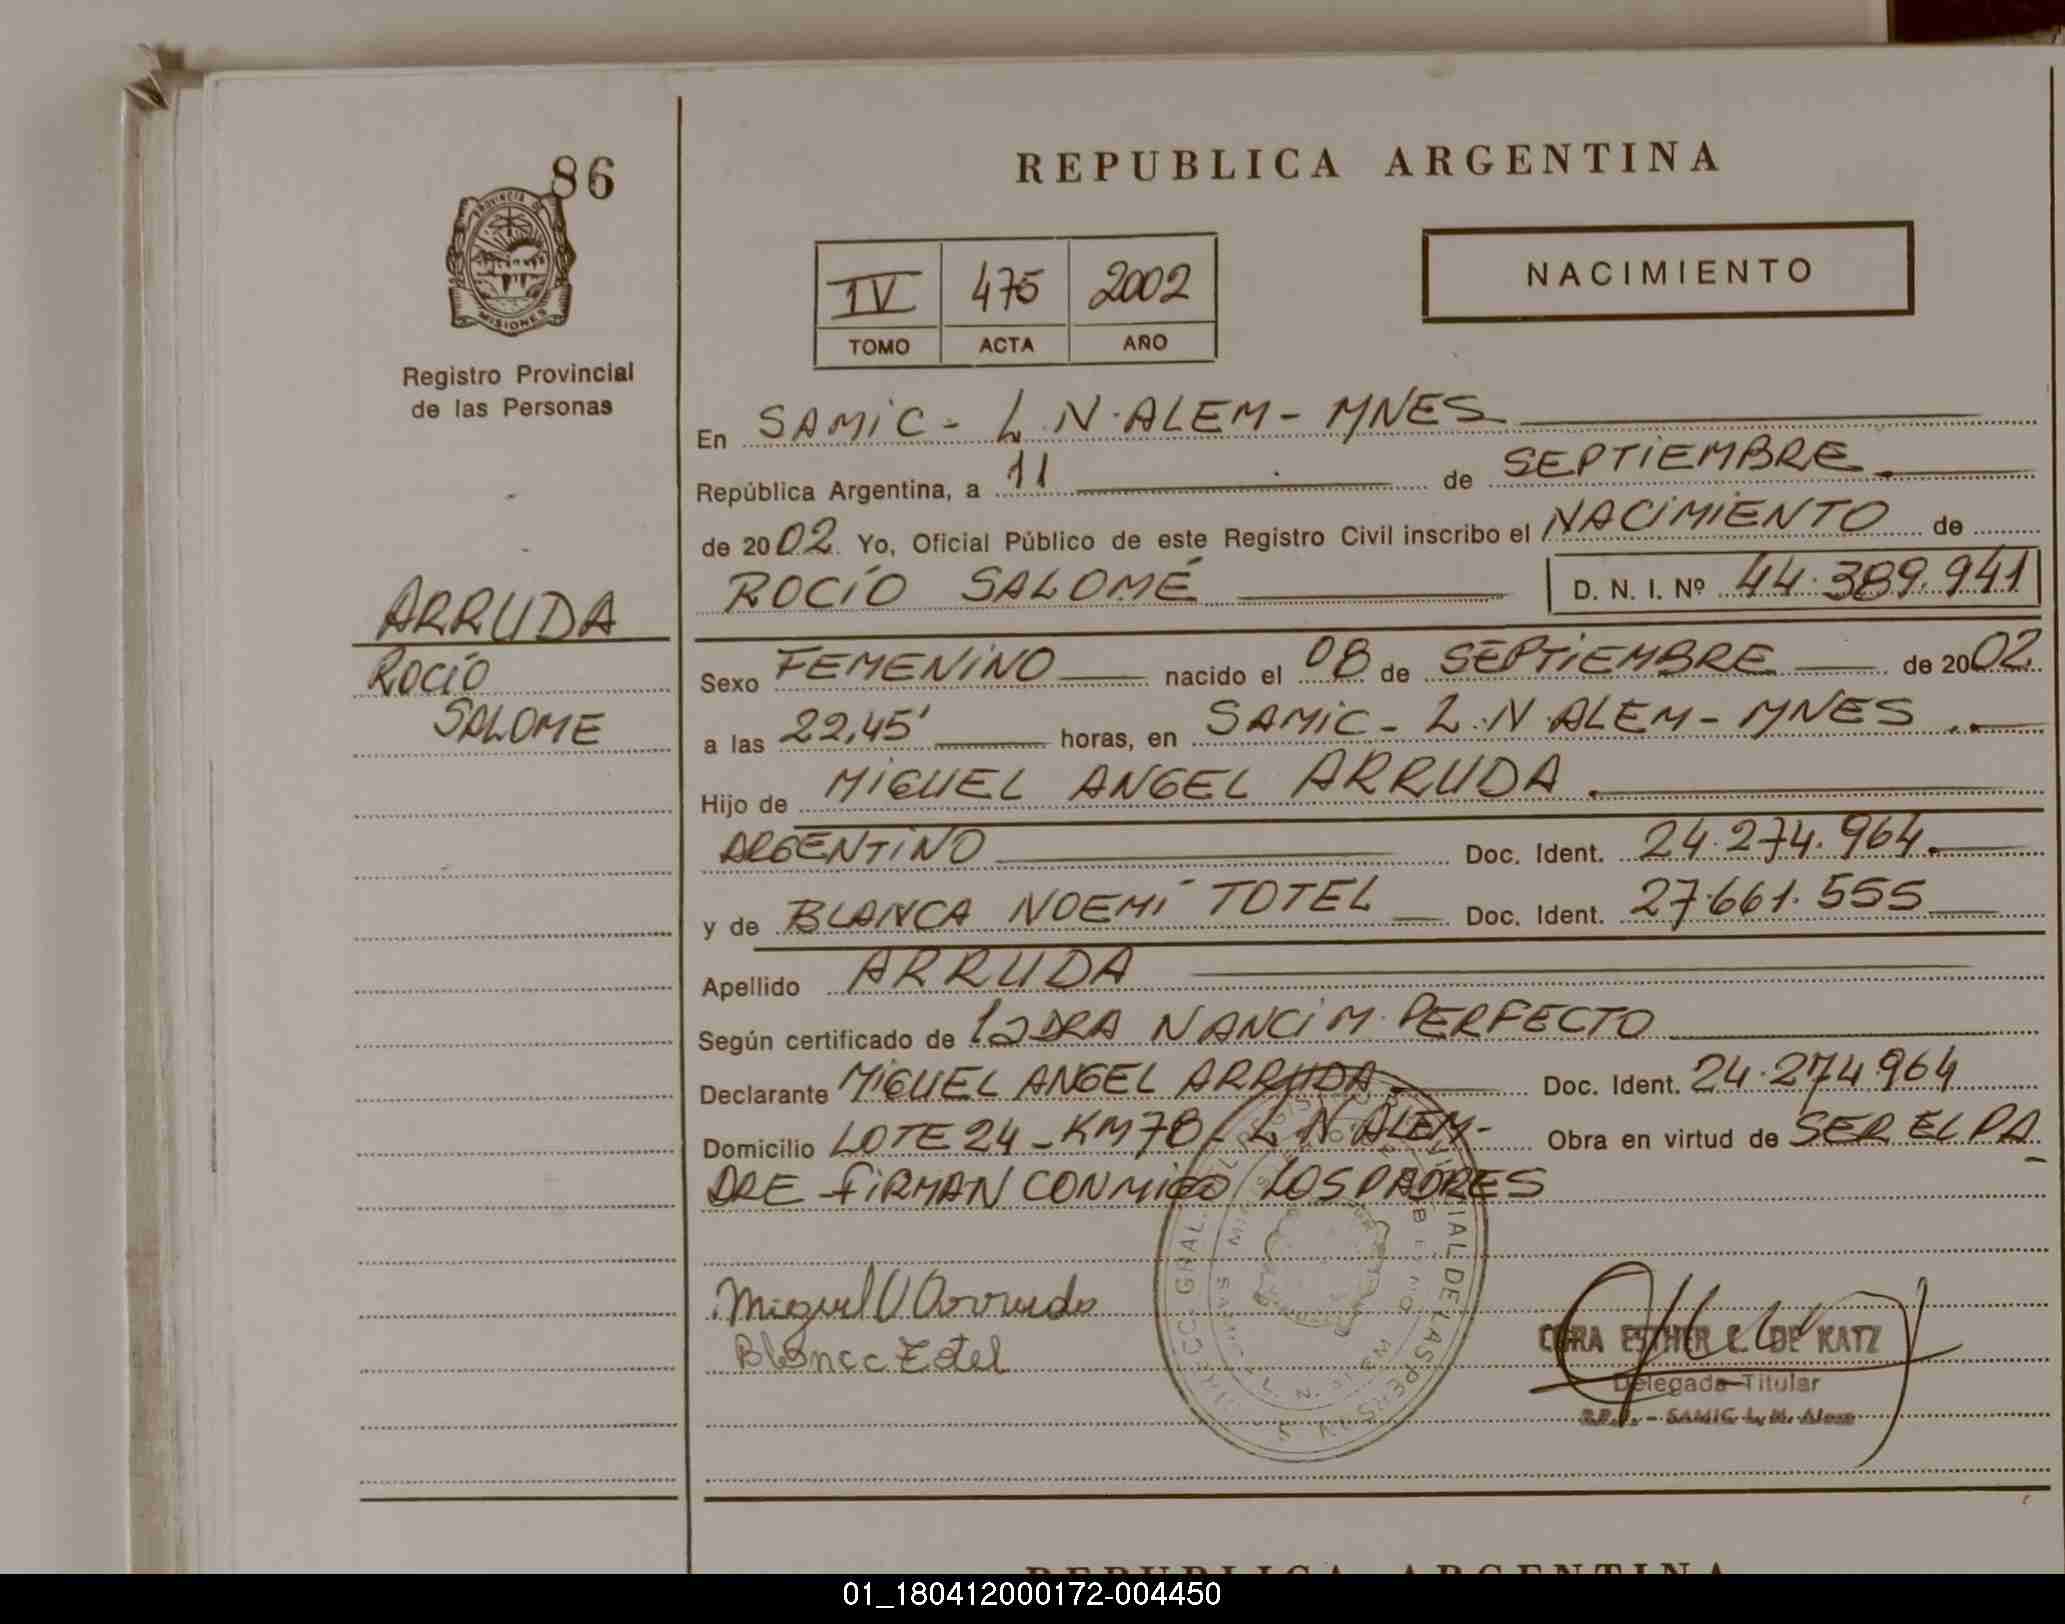 86
PROVINCIA DE
MISIONES
Registro Provincial
de las Personas
ARRUDA
ROCÍO
SALOME
REPUBLICA ARGENTINA
IV 475 2002
TOMO ACTA AÑO
NACIMIENTO
En SAMIC - L.N. ALEM - MNES
República Argentina, a 11 de SEPTIEMBRE
de 2002. Yo, Oficial Público de este Registro Civil inscribo el NACIMIENTO de
ROCÍO SALOMÉ D. N. I. Nº 44.389.941
Sexo FEMENINO nacido el 08 de SEPTIEMBRE de 2002
a las 22,45' horas, en SAMIC - L.N. ALEM - MNES
Hijo de MIGUEL ANGEL ARRUDA
ARGENTINO Doc. Ident. 24.274.964
y de BLANCA NOEMÍ TOTEL Doc. Ident. 27.661.555
Apellido ARRUDA
Según certificado de la DRA NANCI M. PERFECTO
Declarante MIGUEL ANGEL ARRUDA Doc. Ident. 24.274.964
Domicilio LOTE 24 - KM 78 - L N ALEM - Obra en virtud de SER EL PA
DRE FIRMAN CONMIGO LOS PADRES
Miguel Arruda
Blanca Totel
ESTHER C. DE KATZ
Delegada Titular
SAMIC L. N. Alem
REPUBLICA ARGENTINA
01_180412000172-004450